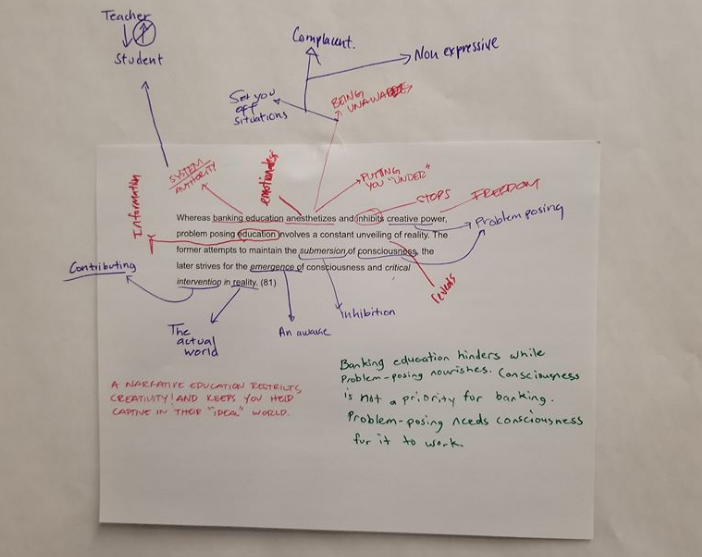 Teacher
Student
Complacent.
Non expressive
Set you
off
situations
BEING
UNAWARE
SYSTEM
AUTHORITY
Information
emotionless
PUTTING
YOU "UNDER"
STOPS
FREEDOM
Problem posing
Whereas banking education anesthetizes and inhibits creative power,
problem posing education involves a constant unveiling of reality. The
former attempts to maintain the submersion of consciousness, the
later strives for the emergence of consciousness and critical
intervention in reality. (81)
Contributing
reveals
The
actual
world
An awake
Inhibition
A NARRATIVE EDUCATION RESTRICTS
CREATIVITY! AND KEEPS YOU HELD
CAPTIVE IN THEIR "IDEAL" WORLD.
Banking education hinders while
Problem-posing nourishes. Consciousness
is not a priority for banking.
Problem-posing needs consciousness
for it to work.